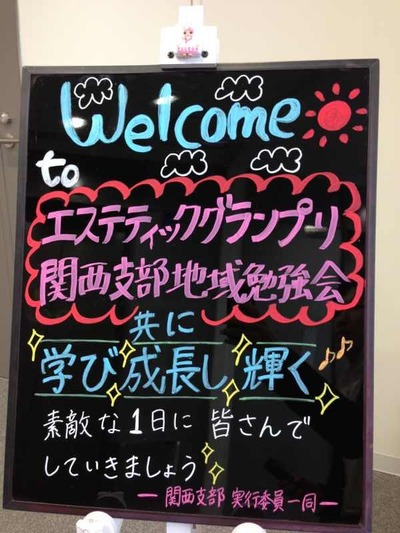 Welcome
to
エステティックグランプリ
関西支部地域勉強会
共に
学び 成長し 輝く
素敵な1日に 皆さんで
していきましょう
ー 関西支部 実行委員一同 ー